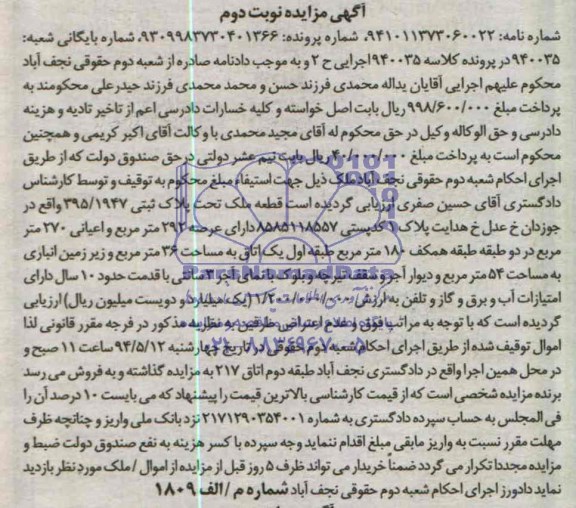 آگهی مزایده نوبت دوم
شماره نامه: ۹۴۱۰۱۱۳۷۳۰۶۰۰۲۲، شماره پرونده: ۹۳۰۹۹۸۳۷۳۰۴۰۱۳۶۶، شماره بایگانی شعبه:
۹۴۰۰۳۵ در پرونده کلاسه ۹۴۰۰۳۵ اجرایی ح ۲ و به موجب دادنامه صادره از شعبه دوم حقوقی نجف آباد
محکوم علیهم اجرایی آقایان یداله محمدی فرزند حسن و محمد محمدی فرزند حیدرعلی محکومند به
پرداخت مبلغ ۹۹۸/۶۰۰/۰۰۰ ریال بابت اصل خواسته و کلیه خسارات دادرسی اعم از تاخیر تادیه و هزینه
دادرسی و حق الوکاله وکیل در حق محکوم له آقای مجید محمدی با وکالت آقای اکبر کریمی و همچنین
محکوم است به پرداخت مبلغ ریال بابت نیم عشر دولتی در حق صندوق دولت که از طریق
اجرای احکام شعبه دوم حقوقی نجف آباد ملک ذیل جهت استیفاء مبلغ محکوم به توقیف و توسط کارشناس
دادگستری آقای حسین صفری ارزیابی گردیده است قطعه ملک تحت پلاک ثبتی ۳۹۵/۱۹۴۷ واقع در
جوزدان خ عدل خ هدایت پلاک کدپستی ۸۵۸۵۱۱۸۵۵۷ دارای عرصه ۲۹۲ متر مربع و اعیانی ۲۷۰ متر
مربع در دو طبقه طبقه همکف ۱۸۰ متر مربع طبقه اول یک اتاق به مساحت ۳۶ متر مربع و زیر زمین انباری
به مساحت ۵۴ متر مربع و دیوار آجر و سقف تیرچه و بلوک با نمای آجر سانتی با قدمت حدود ۱۰ سال دارای
امتیازات آب و برق و گاز و تلفن به ارزش (یک میلیارد و دویست میلیون ریال) ارزیابی
گردیده است که با توجه به مراتب فوق و عدم اعتراض طرفین به نظریه مذکور در فرجه مقرر قانونی لذا
اموال توقیف شده از طریق اجرای احکام شعبه دوم حقوقی در تاریخ چهارشنبه ۹۴/۵/۱۲ ساعت ۱۱ صبح و
در محل همین اجرا واقع در دادگستری نجف آباد طبقه دوم اتاق ۲۱۷ به مزایده گذاشته و به فروش می رسد
برنده مزایده شخصی است که از قیمت کارشناسی بالاترین قیمت را پیشنهاد که می بایست ۱۰ درصد آن را
فی المجلس به حساب سپرده دادگستری به شماره ۲۱۷۱۲۹۰۳۵۴۰۰۱ نزد بانک ملی واریز و چنانچه ظرف
مهلت مقرر نسبت به واریز مابقی مبلغ اقدام ننماید وجه سپرده با کسر هزینه به نفع صندوق دولت ضبط و
مزایده مجددا تکرار می گردد ضمناً خریدار می تواند ظرف ۵ روز قبل از مزایده از اموال / ملک مورد نظر بازدید
نماید دادورز اجرای احکام شعبه دوم حقوقی نجف آباد شماره م / الف ۱۸۰۹